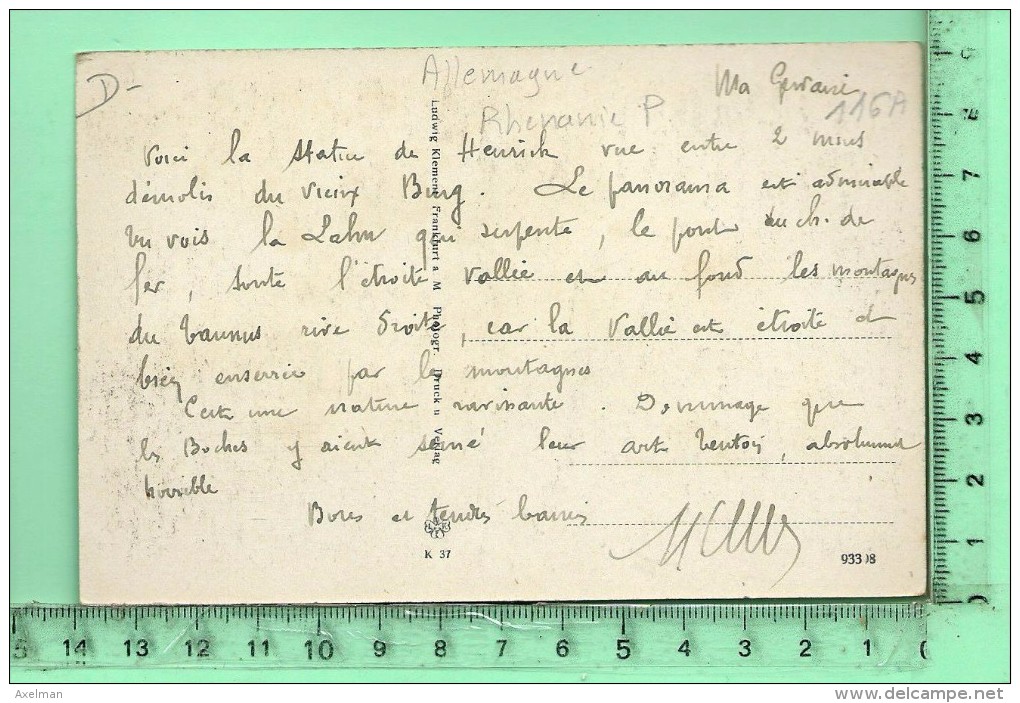 D-
Allemagne
Rhenanie P.
116A
Ma
Voici la statue de Henrick vue entre 2 murs
démolis du vieux Burg. Le panorama est admirable
tu vois la Lahn qui serpente, le pont du ch. de
fer, toute l'étroite vallée et au fond les montagnes
du Taunus rive droite, car la vallée est étroite et
bien enserrée par les montagnes
C'est une nature ravissante. Dommage que
les Boches y aient semé leur art teuton, absolument
horrible
Bons et tendres baisers
Ludwig Klement Frankfurt a M Photogr. Druck u Verlag
K 37
933 8
15 14 13 12 11 10 9 8 7 6 5 4 3 2 1 0
8 7 6 5 4 3 2 1 0
Axelman
www.delcampe.net